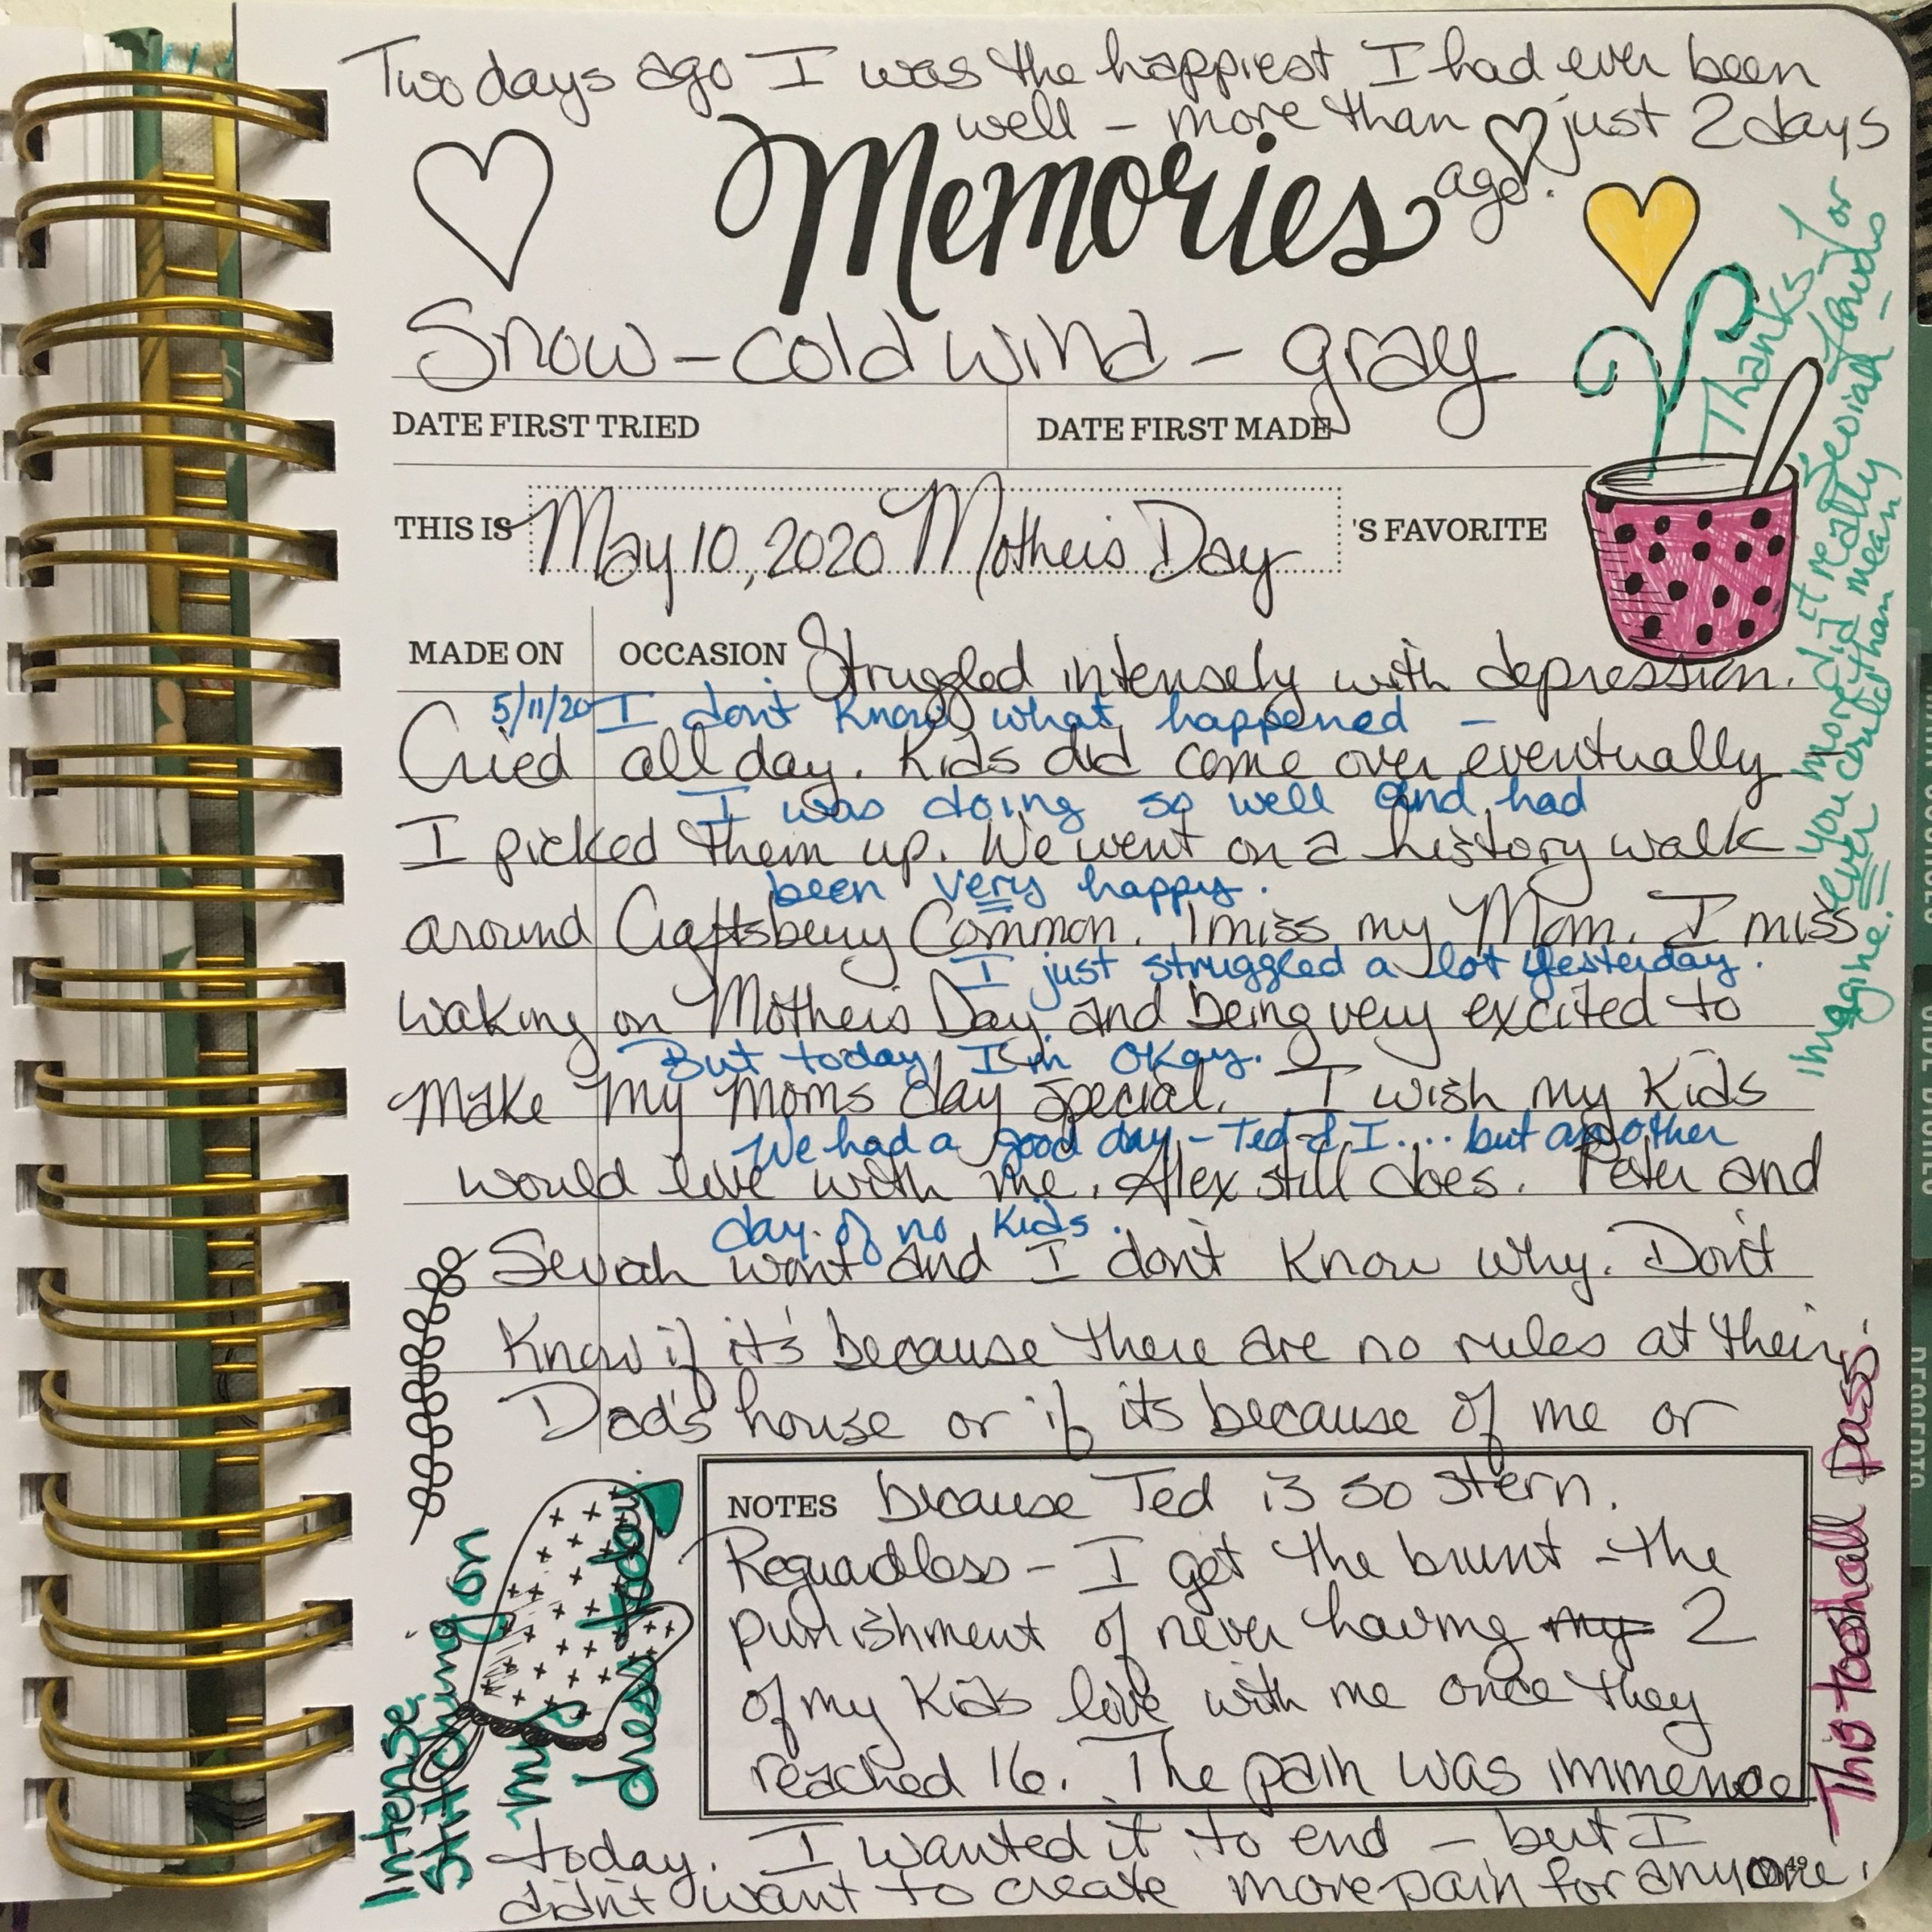 Two days ago I was the happiest I had ever been
well - more than just 2 days
ago.
Memories
Snow - cold wind - gray
DATE FIRST TRIED
DATE FIRST MADE
THIS IS May 10, 2020 Mother's Day 'S FAVORITE
MADE ON
OCCASION Struggled intensely with depression.
5/11/20 I don't know what happened -
Cried all day. Kids did come over eventually
I was doing so well and had
I picked them up. We went on a history walk
been very happy.
around Craftsbury Common. I miss my Mom. I miss
I just struggled a lot yesterday.
waking on Mother's Day and being very excited to
But today I'm okay.
make my Moms day special. I wish my Kids
We had a good day - Ted & I.... but another
would live with me. Alex still does. Peter and
day of no kids.
Seviah won't and I don't know why. Don't
Know if it's because there are no rules at their
Dad's house or if its because of me or
NOTES because Ted is so stern.
Reguardless - I get the brunt - the
punishment of never having my 2
of my Kids live with me once they
reached 16. The pain was immense
today. I wanted it to end - but I
didn't want to create more pain for anyone.
49
Thanks for
Seviah - Hands
you mom did it really
you did
ever could than mean
imagine.
This too shall pass.
Intense
stitching on
my
dress today